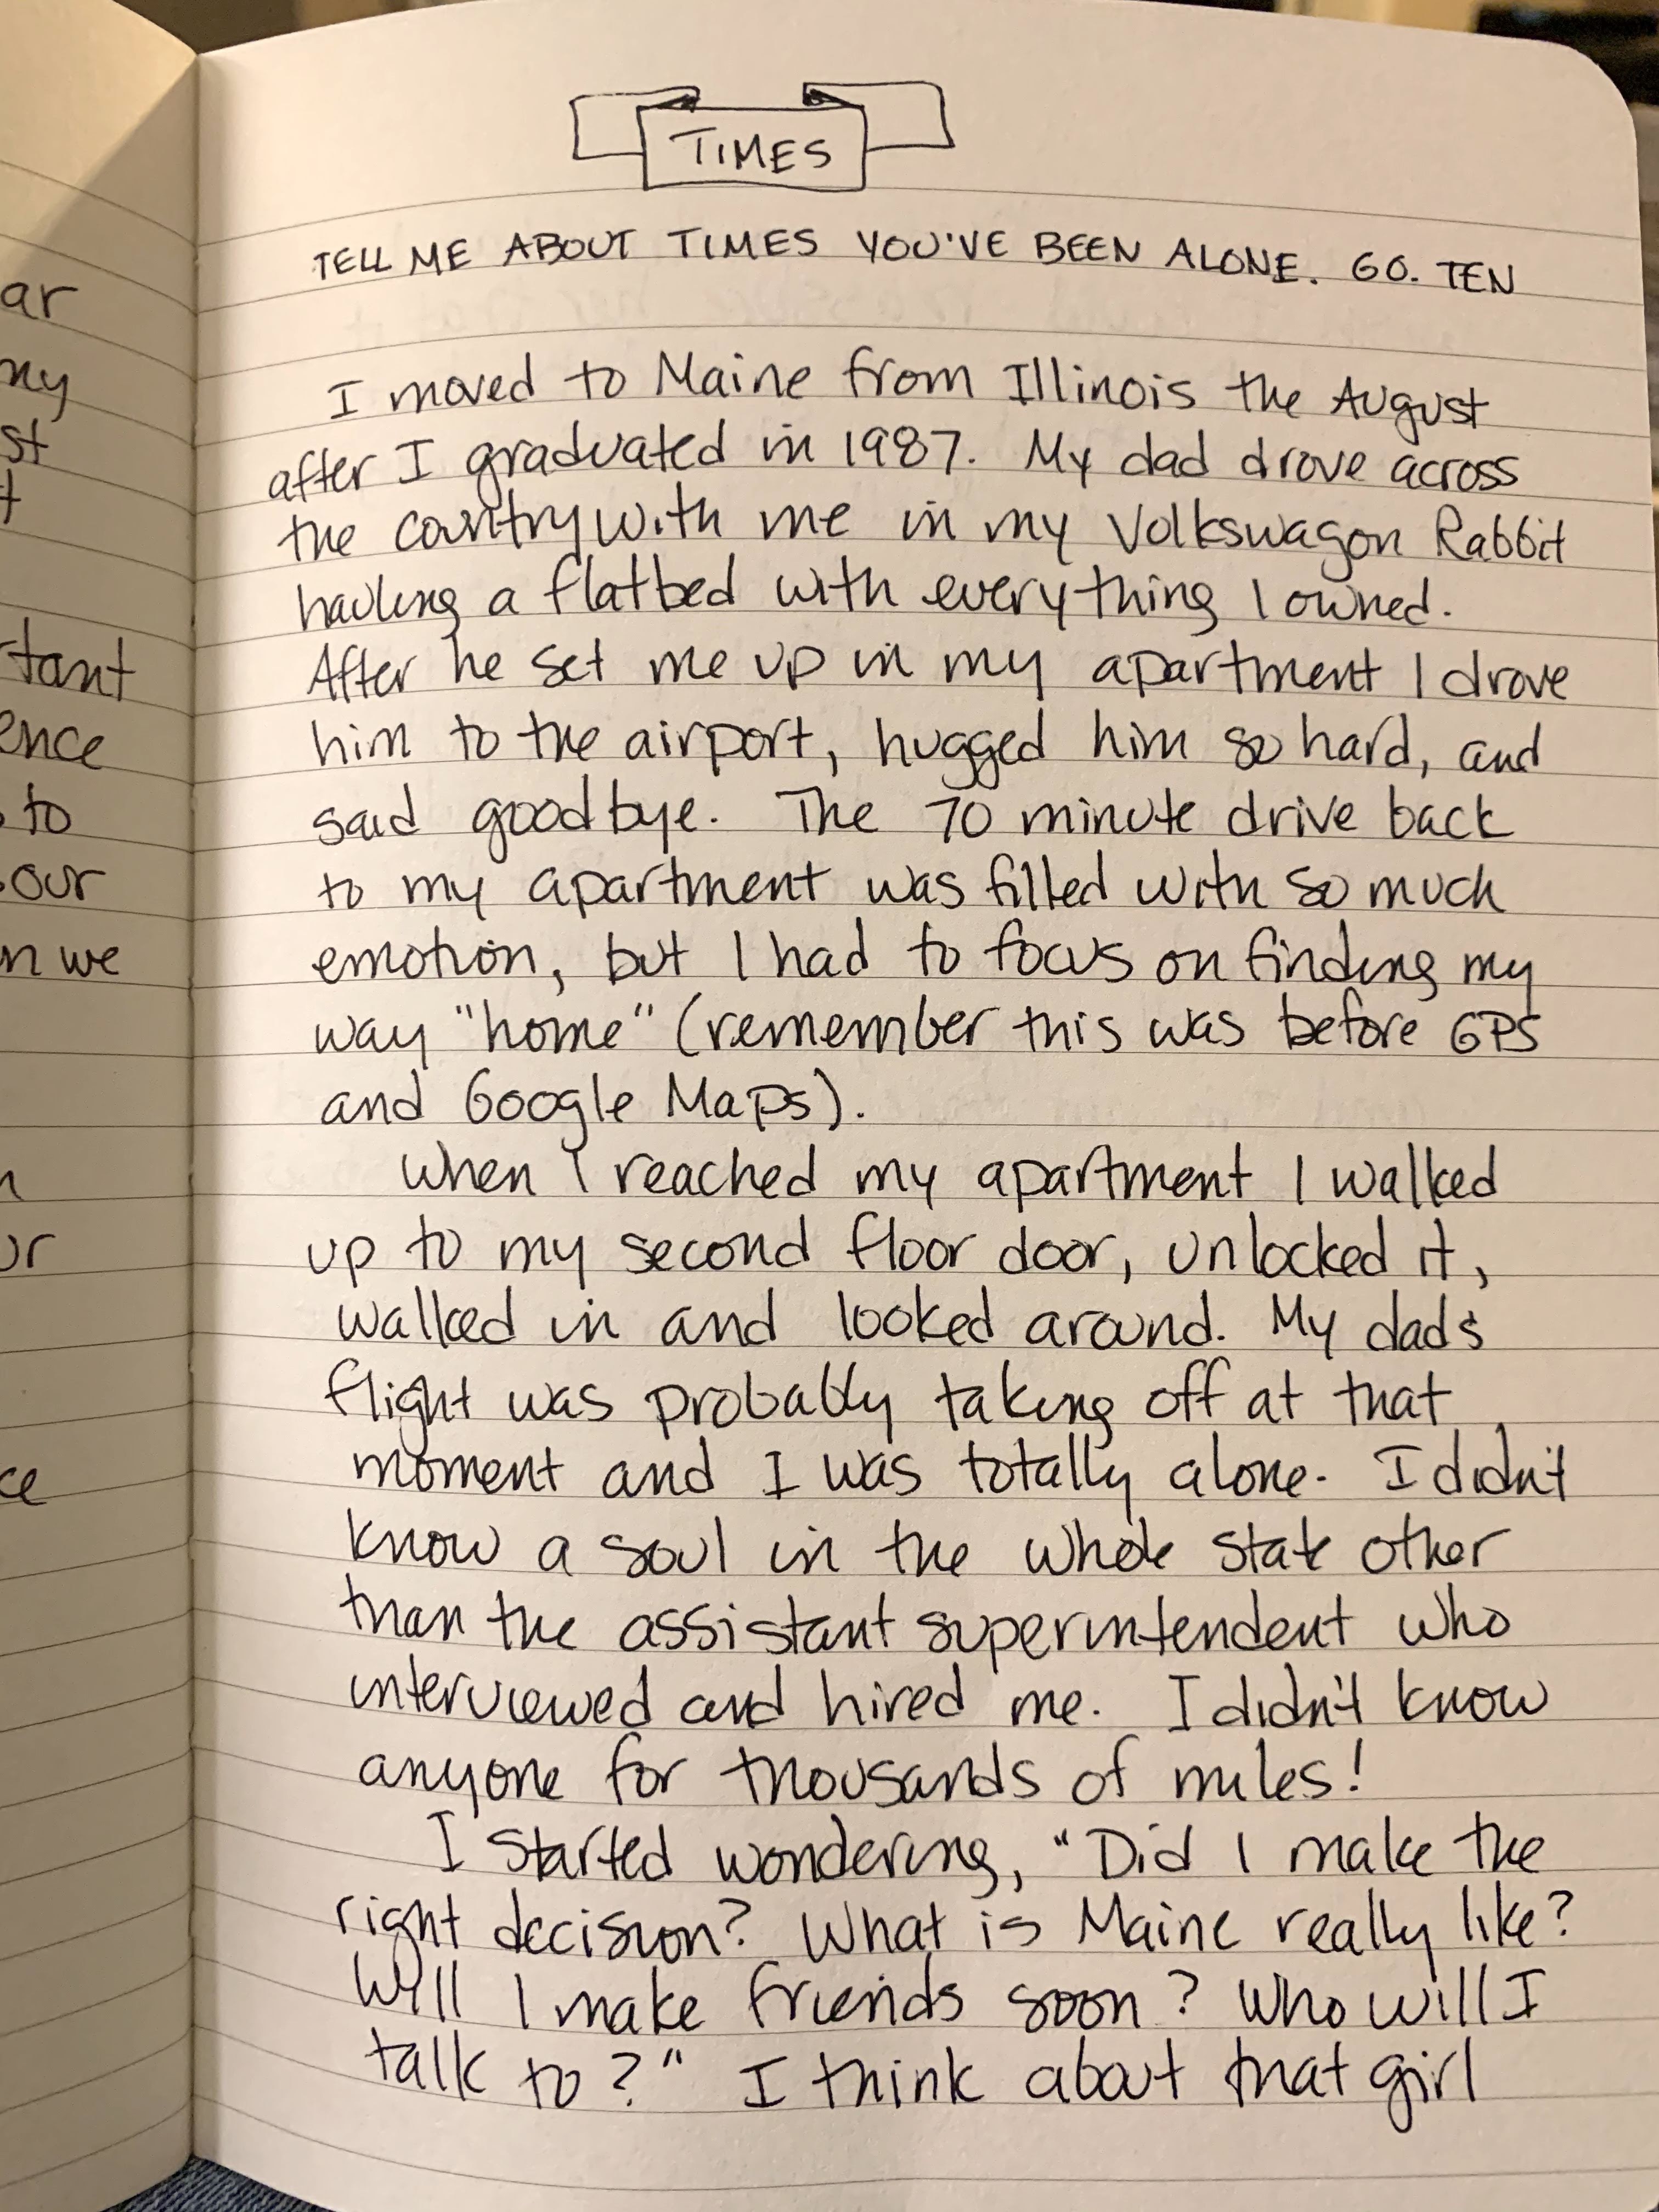 ar
my
st
t
tant
ence
to
our
n we
n
ur
ce
TIMES
TELL ME ABOUT TIMES YOU'VE BEEN ALONE. GO. TEN
I moved to Maine from Illinois the August
after I graduated in 1987. My dad drove across
the country with me in my Volkswagon Rabbit
hauling a flatbed with everything I owned.
After he set me up in my apartment I drove
him to the airport, hugged him so hard, and
said goodbye. The 70 minute drive back
to my apartment was filled with so much
emotion, but I had to focus on finding my
way "home" (remember this was before GPS
and Google Maps).
When I reached my apartment I walked
up to my second floor door, unlocked it,
walked in and looked around. My dads
flight was probably taking off at that
moment and I was totally alone. I didn't
know a soul in the whole state other
than the assistant superintendent who
interviewed and hired me. I didn't know
anyone for thousands of miles!
I started wondering, "Did I make the
right decision? What is Maine really like?
Will I make friends soon? Who will I
talk to?" I think about that girl